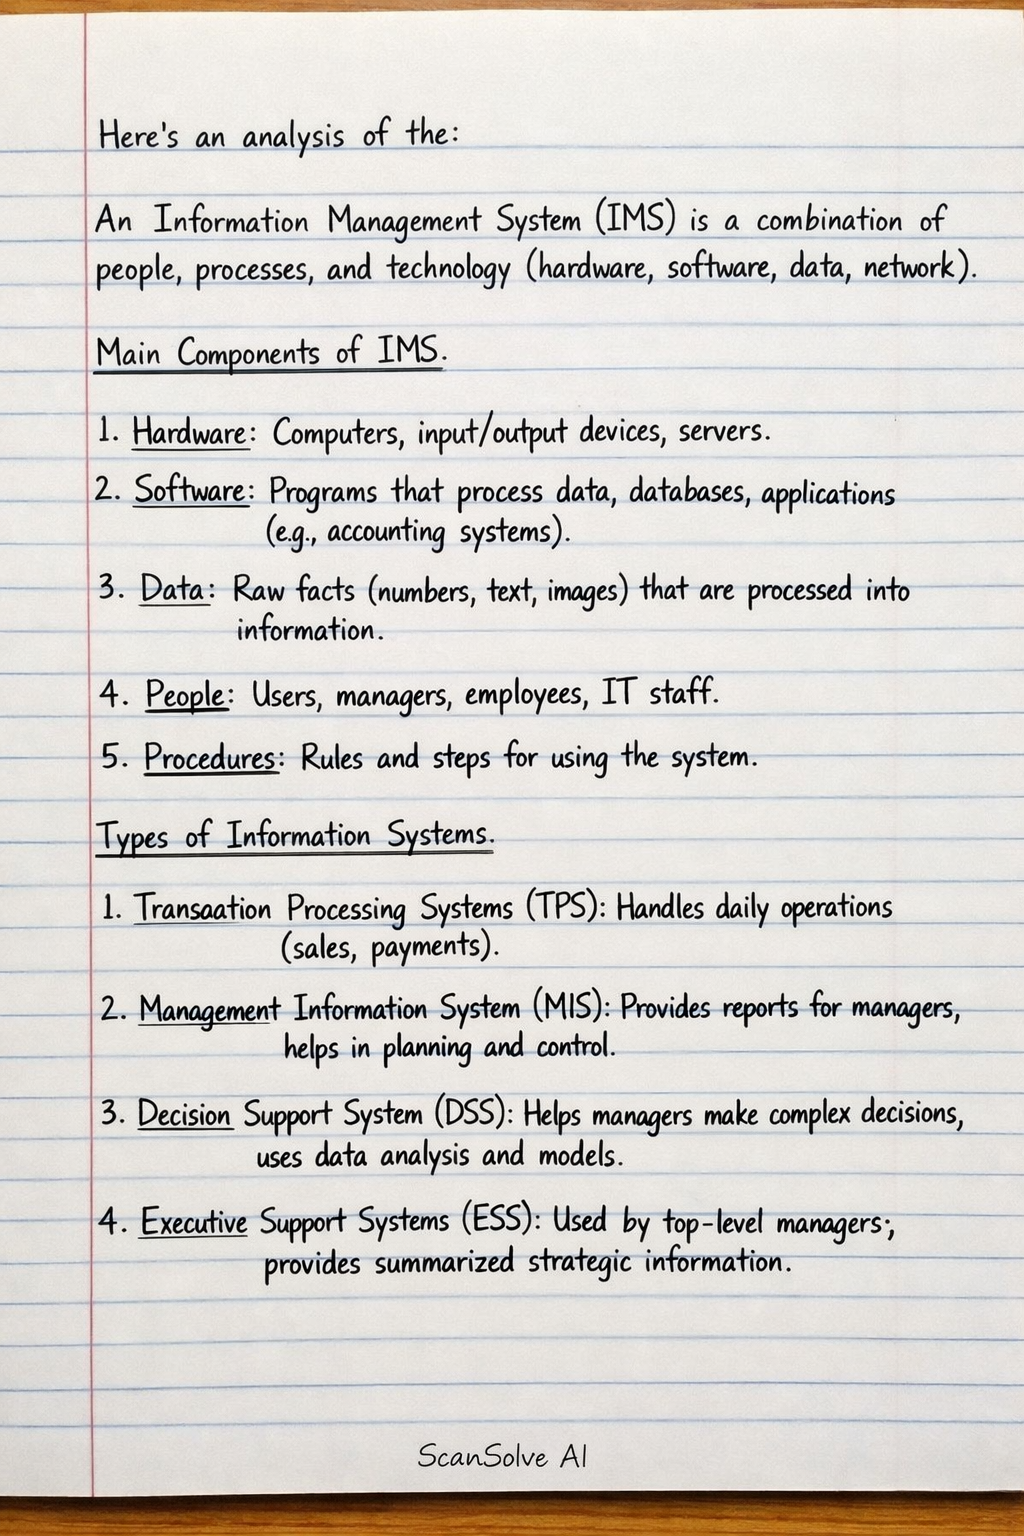 Here's an analysis of the:
An Information Management System (IMS) is a combination of
people, processes, and technology (hardware, software, data, network).
Main Components of IMS.
1. Hardware: Computers, input/output devices, servers.
2. Software: Programs that process data, databases, applications
(e.g., accounting systems).
3. Data: Raw facts (numbers, text, images) that are processed into
information.
4. People: Users, managers, employees, IT staff.
5. Procedures: Rules and steps for using the system.
Types of Information Systems.
1. Transaation Processing Systems (TPS): Handles daily operations
(sales, payments).
2. Management Information System (MIS): Provides reports for managers,
helps in planning and control.
3. Decision Support System (DSS): Helps managers make complex decisions,
uses data analysis and models.
4. Executive Support Systems (ESS): Used by top-level managers;
provides summarized strategic information.
ScanSolve AI